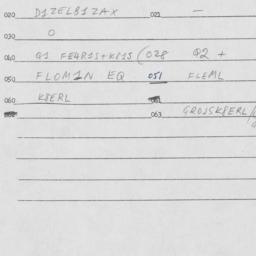 020 D1ZELB1ZAX 021 —
030 O
040 Q1 FE4R1S+K81S (028 Q2 +
050 FLOM1N EQ 051 FLEML
060 K8ERL
063 GROJSK8ERL/